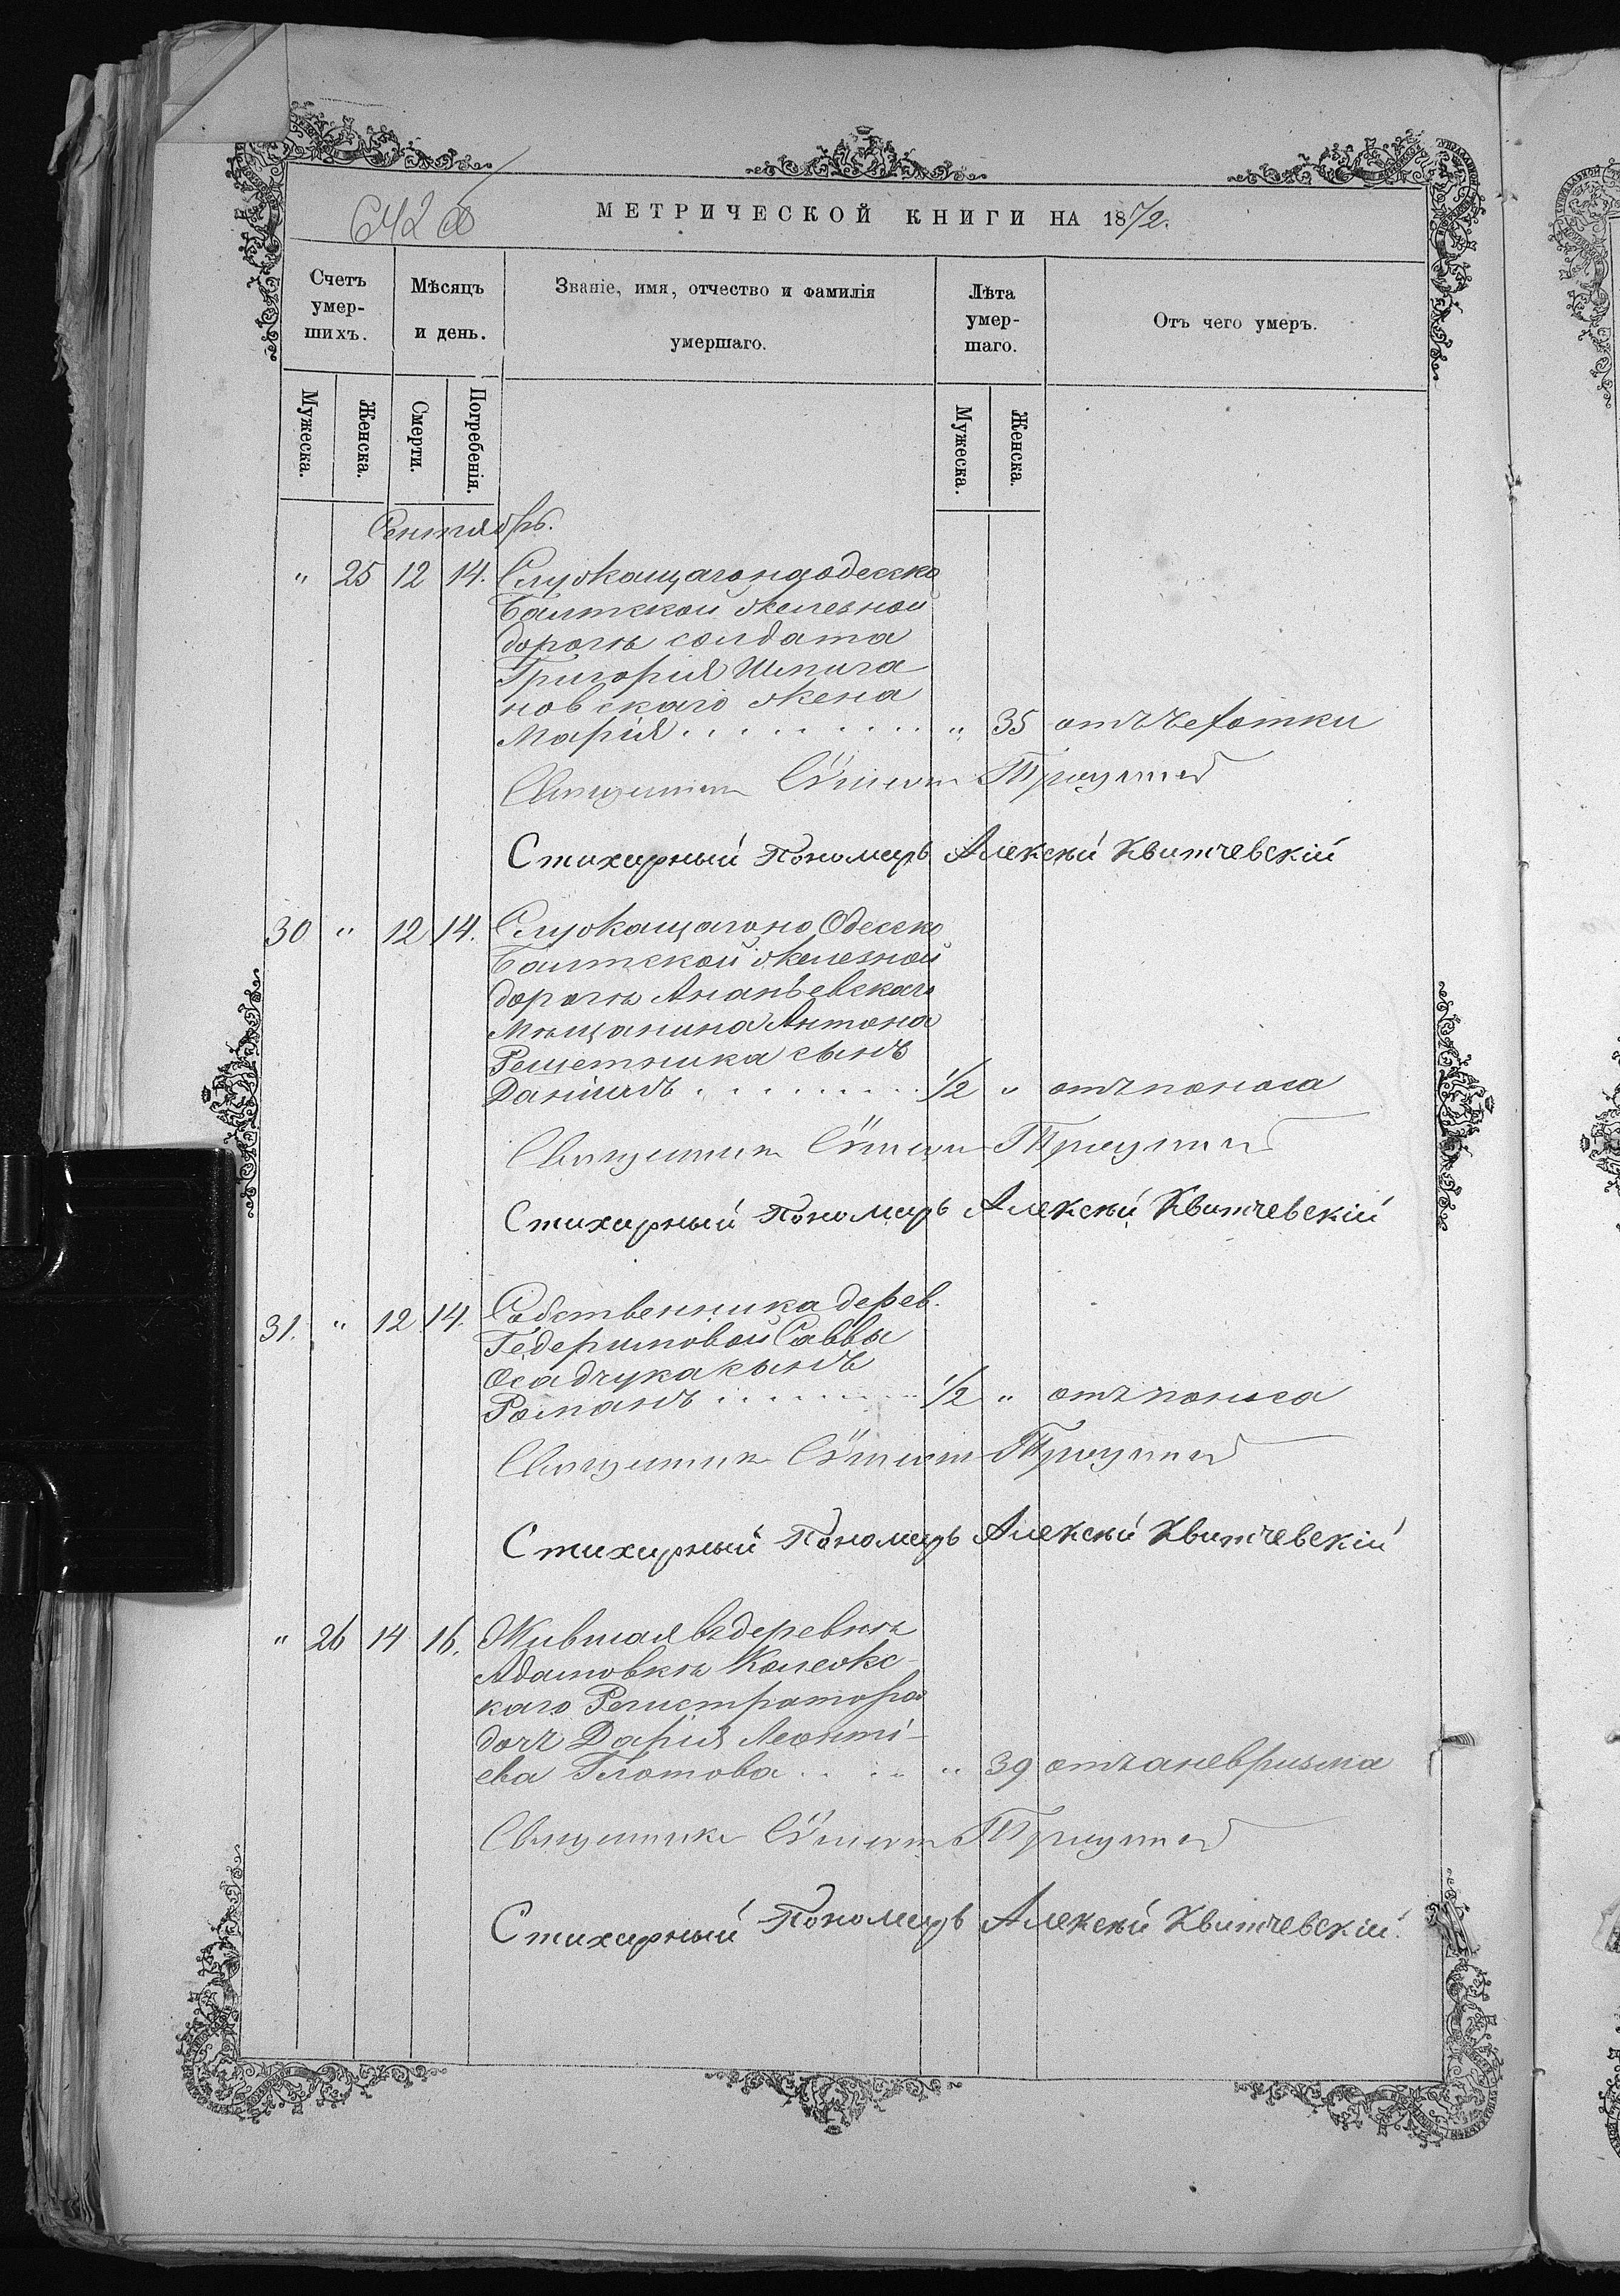 642 об
МЕТРИЧЕСКОЙ КНИГИ НА 1872.
Счетъ умер-шихъ.
Мѣсяцъ и день.
Званіе, имя, отчество и фамилія умершаго.
Лѣта умер-шаго.
Отъ чего умеръ.
Мужеска. Женска. Смерти. Погребенія. Мужеска. Женска.
Сентябрь.
" 25 12 14. Служащаго на одесско
Балтской железной
дорогѣ солдата
Григорія Шпига
новскаго жена
Марія . . . . . . . . . " 35 отъ чехотки
Священникъ
Стихирный Пономарь Алексѣй Квитчевскій
30 " 12 14. Служащаго на Одесско
Балтской железной
дорогѣ Ананьевскаго
Мѣщанина Антона
Решетника сынъ
Даніилъ . . . . . . . . 1/2 " отъ поноса
Священникъ
Стихирный Пономарь Алексѣй Квитчевскій
31. " 12 14. Собственника дерев.
Гедеримовой Саввы
Осадчука сынъ
Романъ . . . . . . . . 1/2 " отъ поноса
Священникъ
Стихирный Пономарь Алексѣй Квитчевскій
" 26 14 16. Жившая въ деревнѣ
Адамовкѣ Колежс-
каго Регистратора
дочь Дарія Леонті-
ева Глотова . . . . " 39 отъ аневризма
Священникъ
Стихирный Пономарь Алексѣй Квитчевскій.